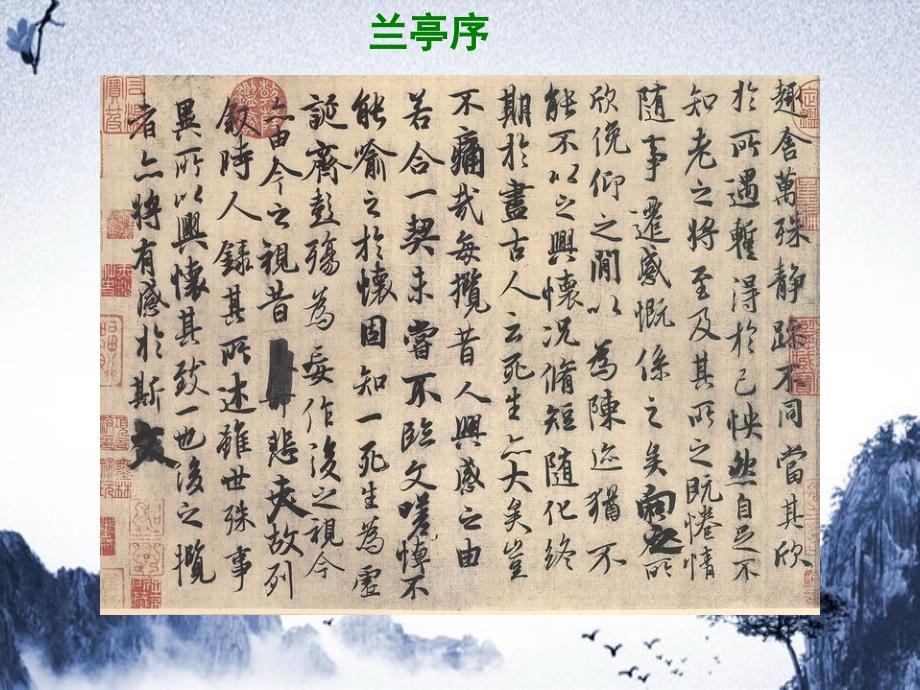 兰亭序
趣舍萬殊静躁不同當其欣
於所遇蹔得於己怏然自足不
知老之將至及其所之既惓情
隨事遷感慨係之矣向之所
欣俛仰之閒以為陳迹猶不
能不以之興懷況脩短隨化終
期於盡古人云死生亦大矣豈
不痛哉每攬昔人興感之由
若合一契未嘗不臨文嗟悼不
能喻之於懷固知一死生為虛
誕齊彭殤為妄作後之視今
亦由今之視昔悲夫故列
叙時人錄其所述雖世殊事
異所以興懷其致一也後之攬
者亦將有感於斯文